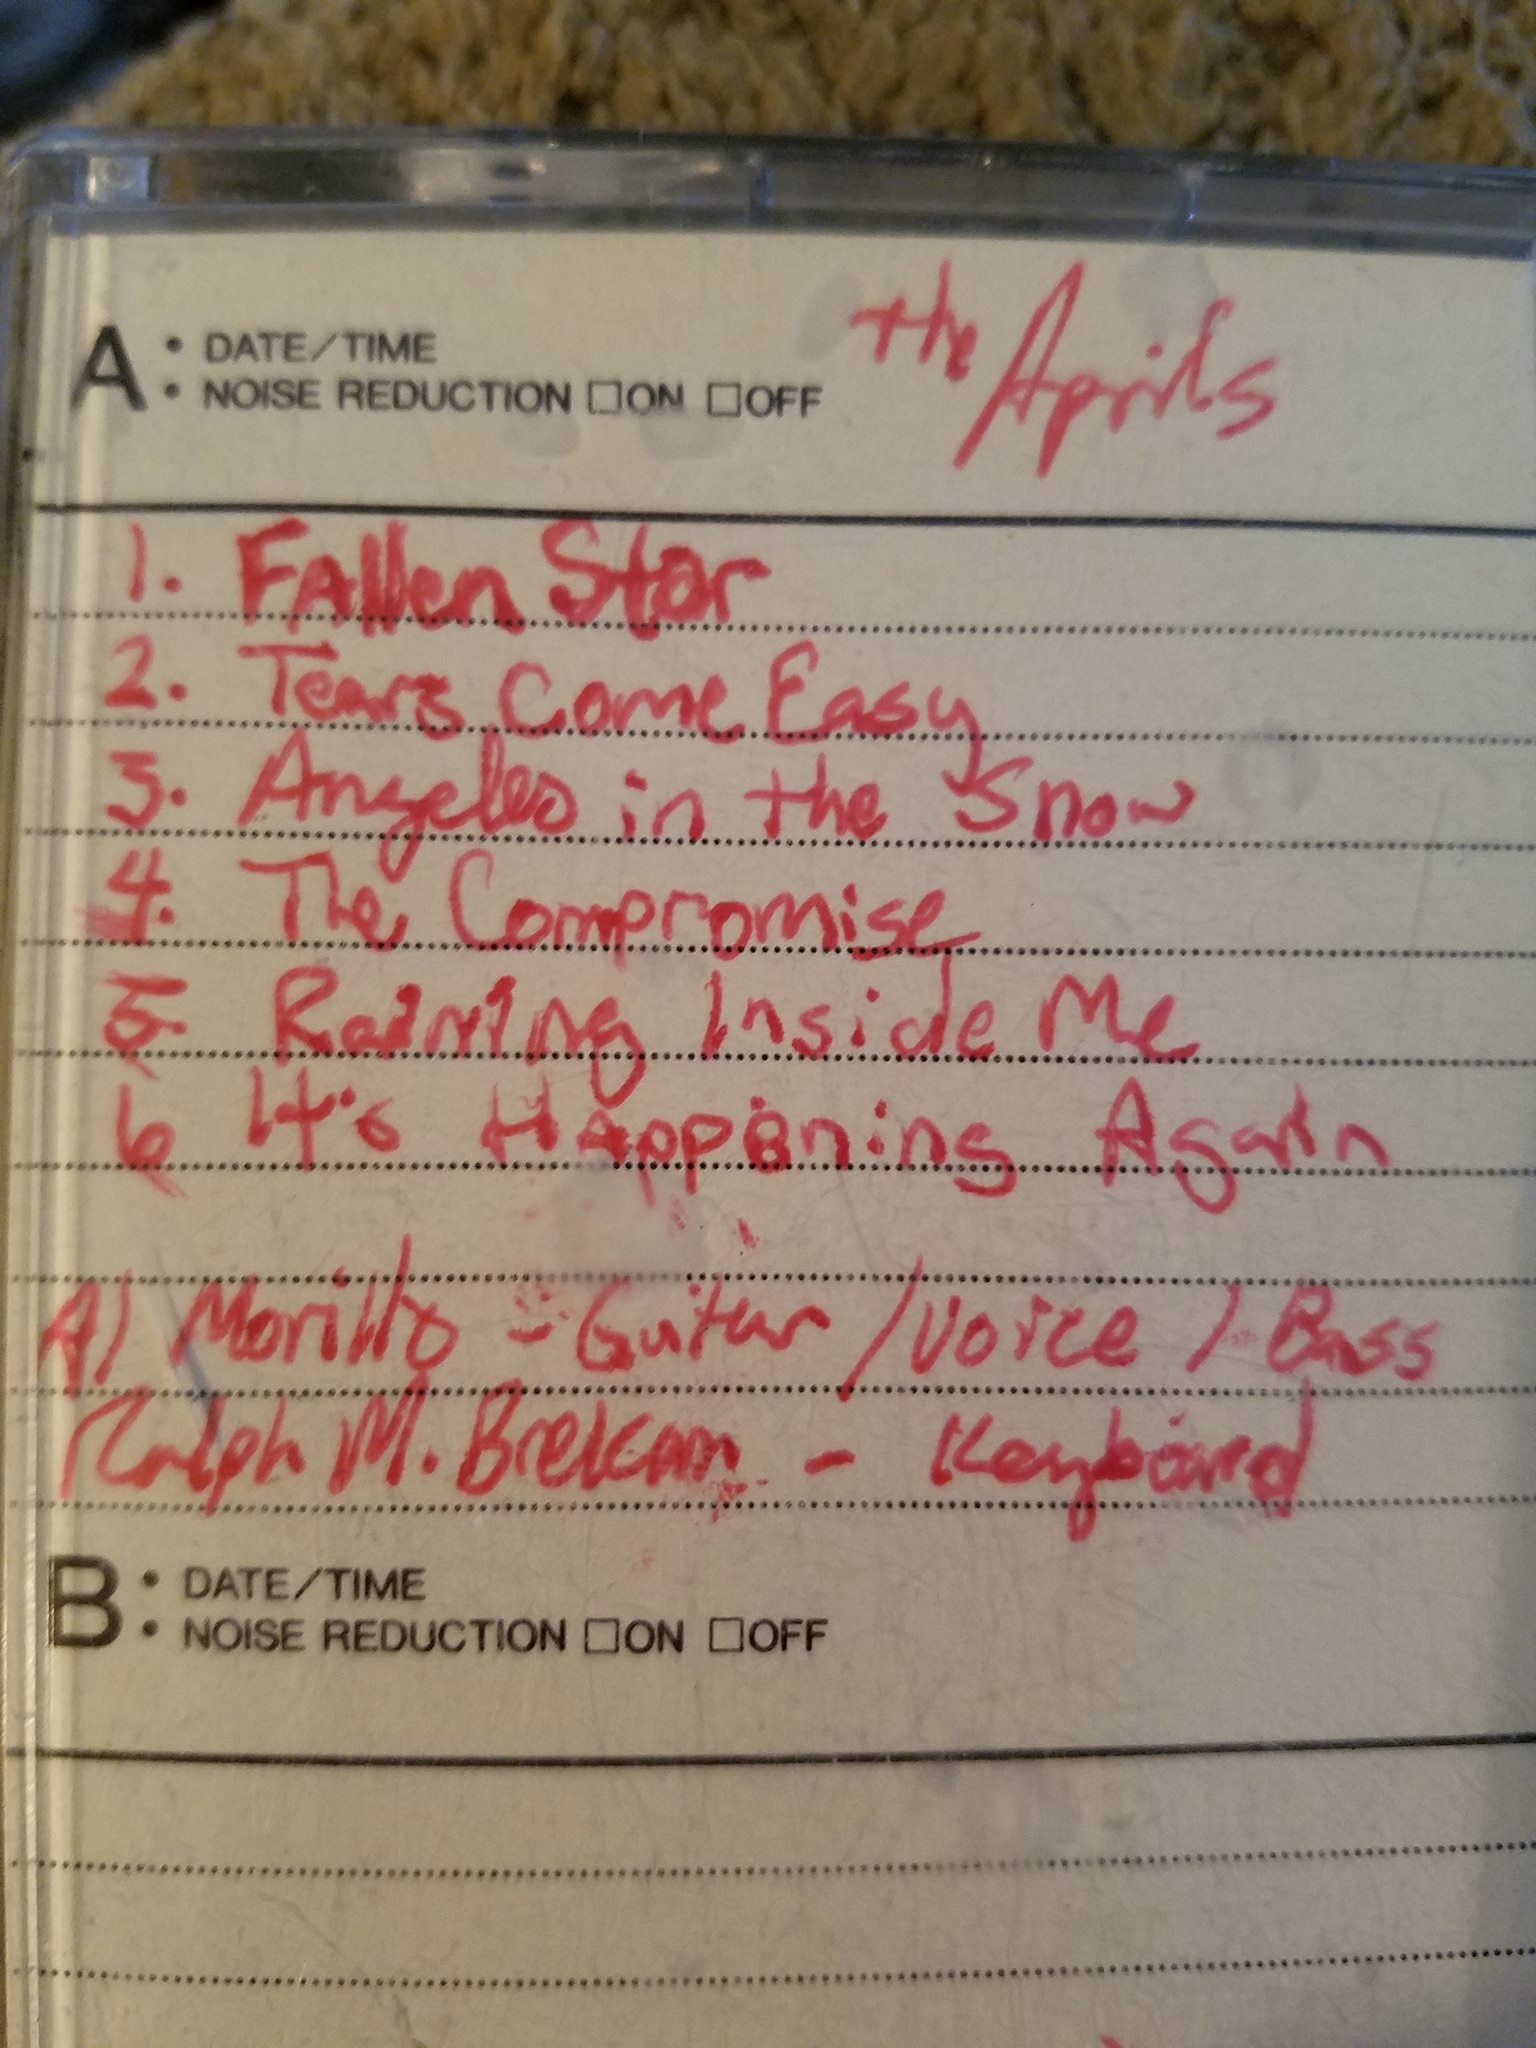 the Aprils
A: DATE/TIME
• NOISE REDUCTION □ON □OFF
1. Fallen Star
2. Tears Come Easy
3. Angeles in the Snow
4. The Compromise
5. Raining Inside Me
6 It's Happening Again
Al Morillo - Guitar / Voice / Bass
Ralph M. Brekan - Keyboard
B: DATE/TIME
• NOISE REDUCTION □ON □OFF